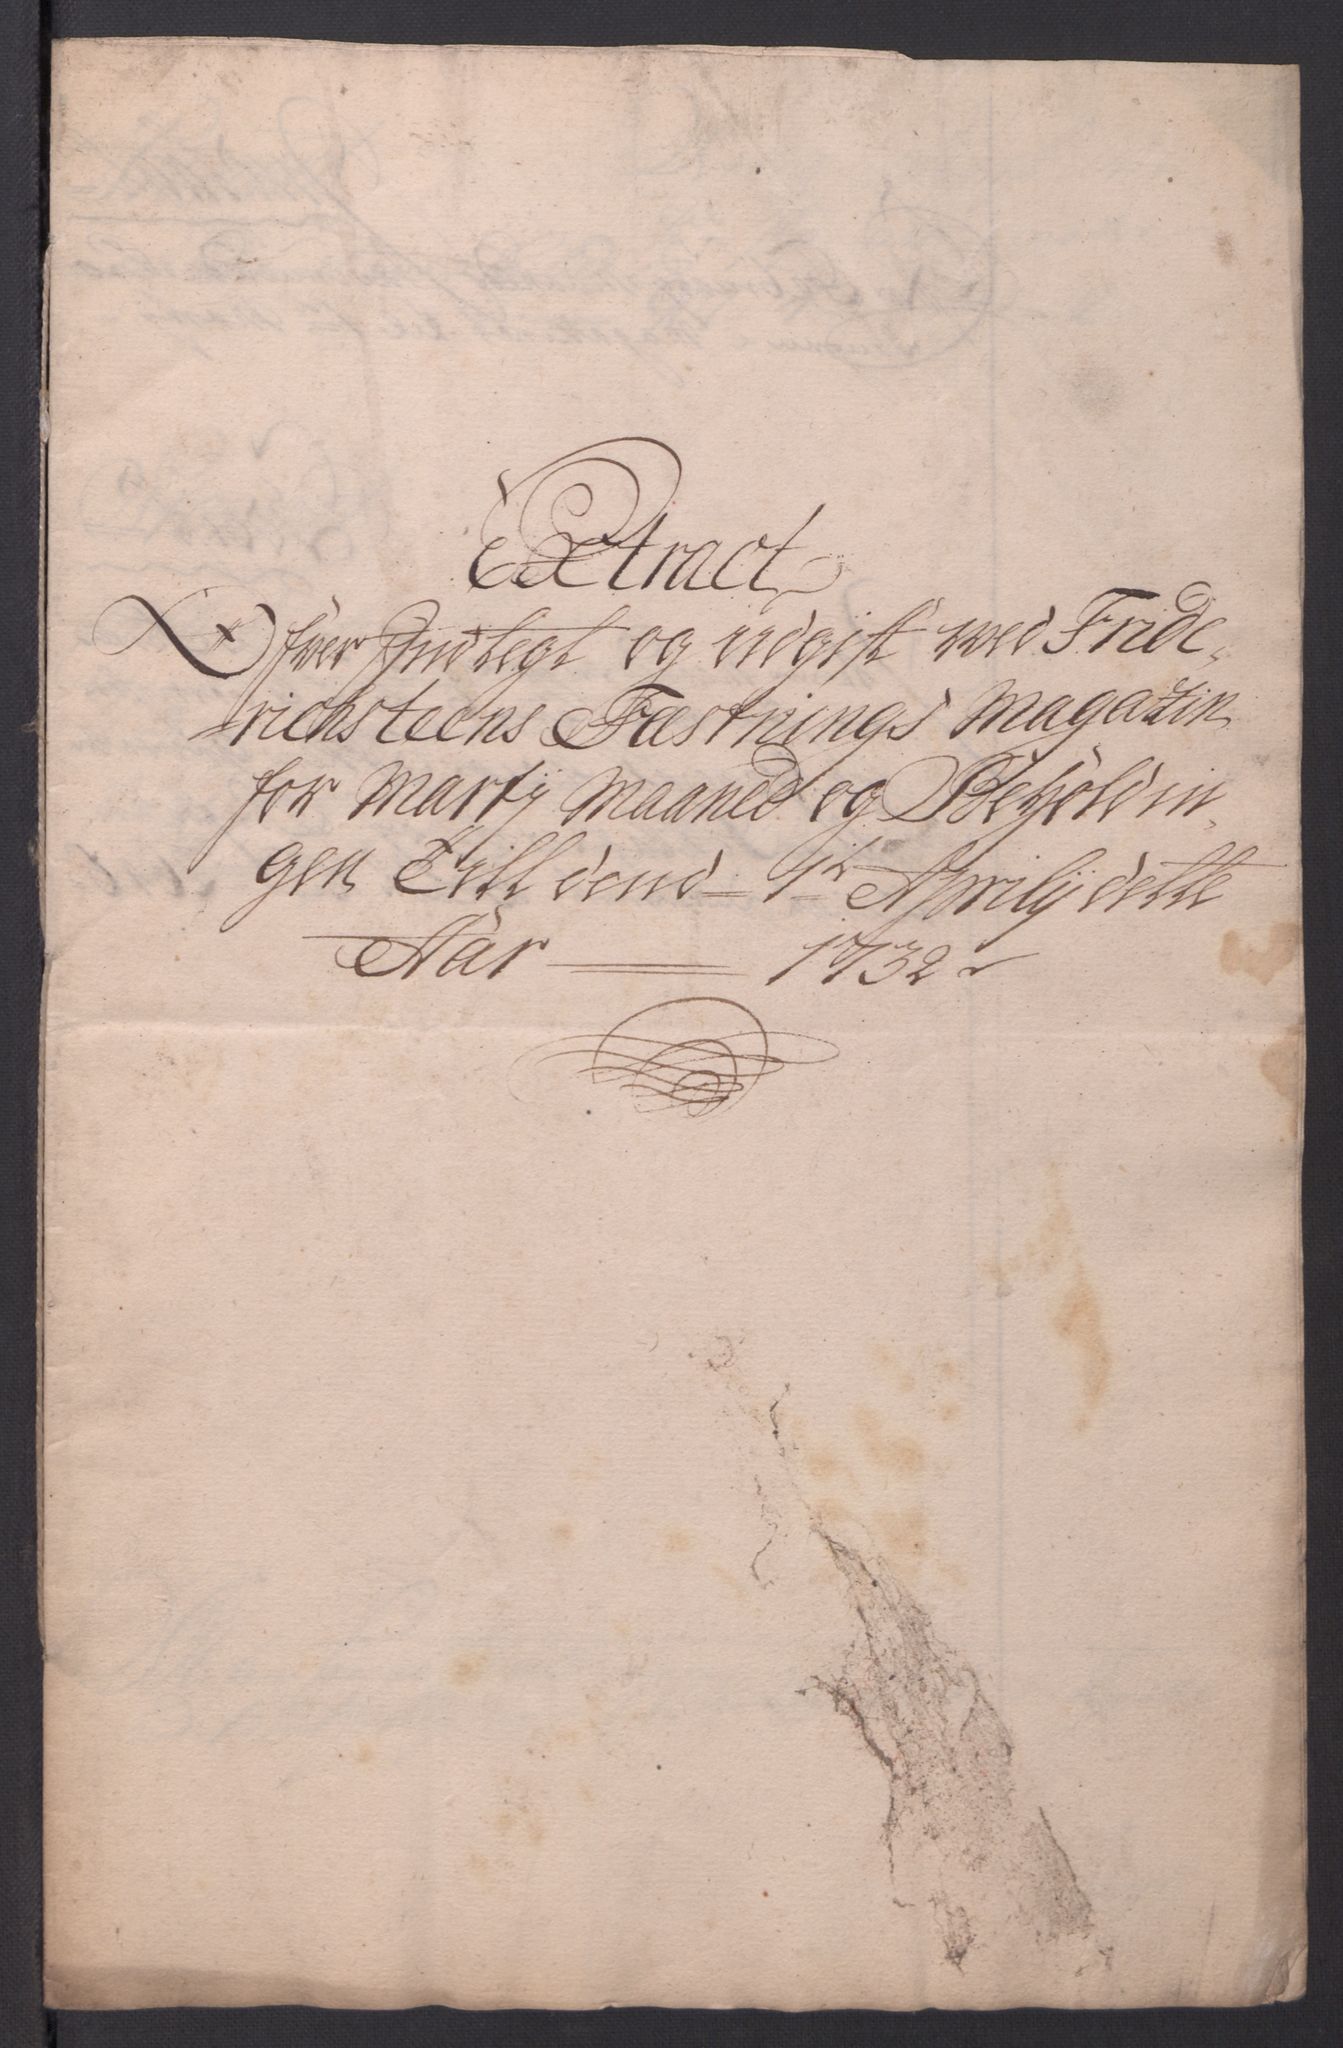 Extract
Ofver Indtegt og üdgift ved Fride,
richsteens Fæstnings Magazin
for Martij Maaned og Beholdin,
gen Till dend 1te Aprilij dette
Aar 1732